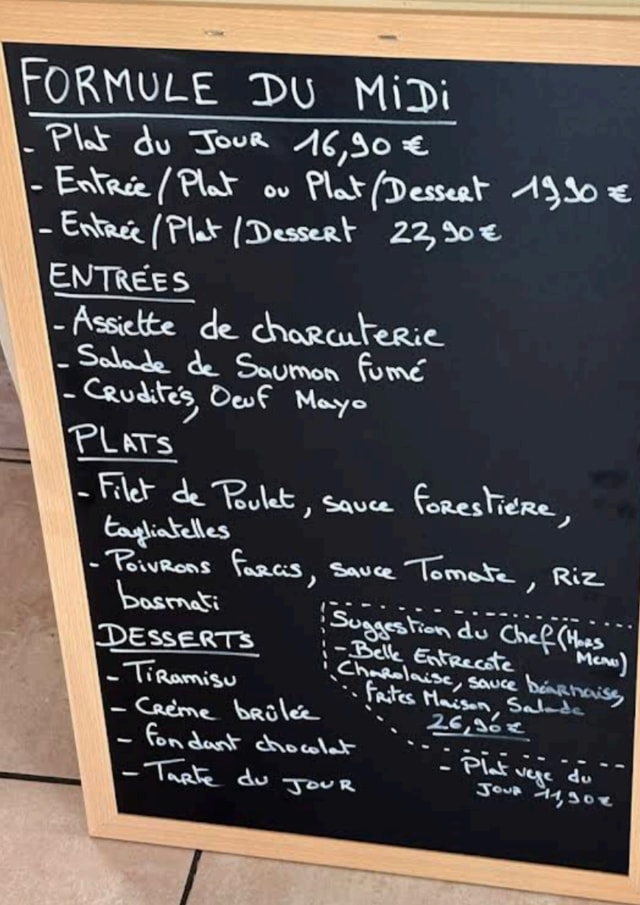 FORMULE DU MiDi
- Plat du JOUR 16,90 €
- Entrée / Plat ou Plat / Dessert 19,90 €
- Entrée / Plat / Dessert 22,90 €
ENTRÉES
- Assiette de charcuterie
- Salade de Saumon fumé
- Crudités, Oeuf Mayo
PLATS
- Filet de Poulet, sauce forestière,
tagliatelles
- Poivrons farcis, sauce Tomate, Riz
basmati
DESSERTS
- Tiramisu
- Crème brûlée
- fondant chocolat
- Tarte du JOUR
Suggestion du Chef (Hors
Menu)
- Belle Entrecote
Charolaise, sauce béarnaise,
frites Maison, Salade
26,90 €
- Plat vege du
JOUR 11,90 €